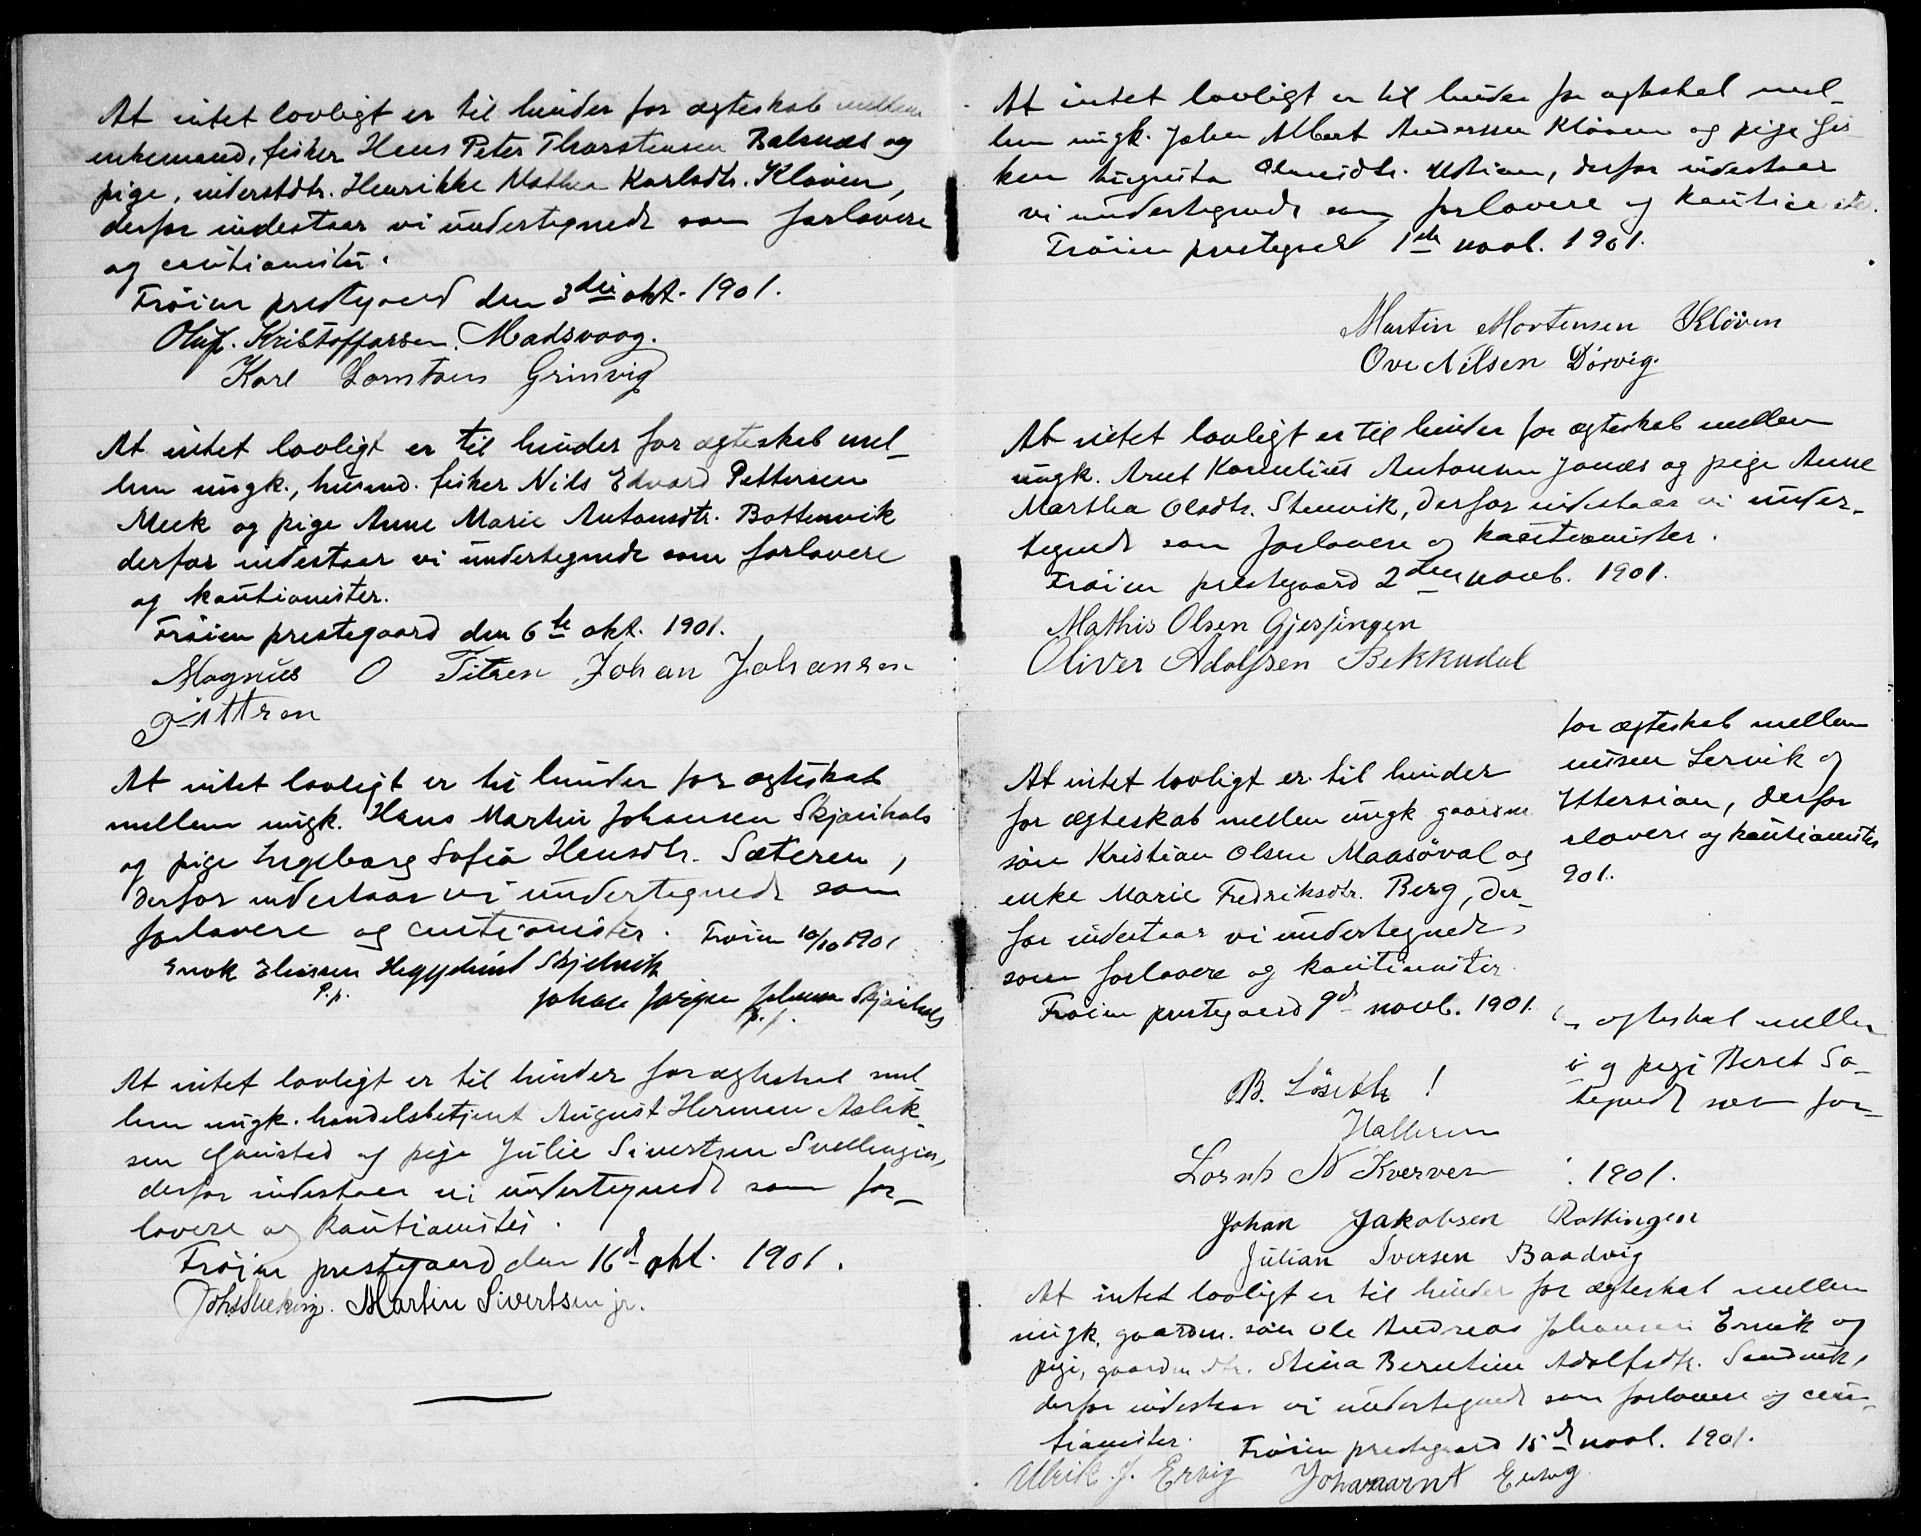 At intet lovligt er til hinder for ægteskab mellem
enkemand, fisker Hans Peter Thorstensen Balsnæs og
pige, inderstdtr. Henrikke Mathea Karlsdtr. Kløven,
derfor indestaar vi undertegnede som forlovere
og cautionister.
Frøien prestegaard den 3die okt. 1901.
Oluf. Kristoffersen. Madsvaag.
Karl Lorntsen Grinvig
At intet lovligt er til hinder for ægteskab mel-
lem ungk., husmd. fisker Nils Edvard Pettersen
Meek og pige Anne Marie Antonsdtr. Bottenvik
derfor indestaar vi undertegnede som forlovere
og kautionister.
Frøien prestegaard den 6te okt. 1901.
Magnus O Titran Johan Johansen
Tittran
At intet lovligt er til hinder for ægteskab
mellem ungk. Hans Martin Johansen Skjærihals
og pige Ingeborg Sofie Hansdtr. Sæteren,
derfor indestaar vi undertegnede som
forlovere og cautionister. Frøien 10/10 1901
Enok Eliassen Skjelvik
p.p.
Johan Jørgen Johansen Skjærihals
p.p.
At intet lovligt er til hinder for ægteskab mel-
lem ungk. handelsbetjent August Herman Aslak-
sen Gansted og pige Julie Sivertsen Svellingen,
derfor indestaar vi undertegnede som for-
lovere og kautionister.
Frøien prestegaard den 16d okt. 1901.
Martin Sivertsen jr.
At intet lovligt er til hinder for ægteskab mel-
lem ungk. Johan Albert Anderssen Kløven og pige Fis
ken Augusta Ustian, derfor indestaar
vi undertegnede som forlovere og kautionister.
Frøien prestegaard 1ste novb. 1901.
Martin Mortensen Kløven
Ove Nilsen Dørvig.
At intet lovligt er til hinder for ægteskab mellem
ungk. Arnt Kornelius Antonsen Janæs og pige Anne
Martha Olsdtr. Stenvik, derfor indestaar vi under-
tegnede som forlovere og kautionister.
Frøien prestegaard 2den novb. 1901.
Mathis Olsen Gjesingen
Oliver Adolfsen Bekkudal
for ægteskab mellem
nisen Lervik og
Yttersian, derfor
rlovere og kautionister
901.
At intet lovligt er til hinder
for ægteskab mellem ungk gaardm
søn Kristian Olsen Maasøval og
enke Marie Fredriksdtr. Berg, der-
for indestaar vi undertegnede,
som forlovere og kautionister.
Frøien prestegaard 9d novb. 1901.
ægteskab mellem
og pige Beret So-
tegnede som for-
B. Løseth !
Hallaren
Lornts N Kverven
1901.
Johan Jakobsen Rottingen
Julian Iversen Baadvig
At intet lovligt er til hinder for ægteskab mellem
ungk, gaardm. søn Ole Andreas Johansen Ervik og
pige, gaardm dtr. Stina Berntine Adolfsdtr. Sandvik,
derfor indestaar vi undertegnede som forlovere og cau-
tionister. Frøien prestegaard 15d novb. 1901.
Ulrik J. Ervig Johan arnt Ervig